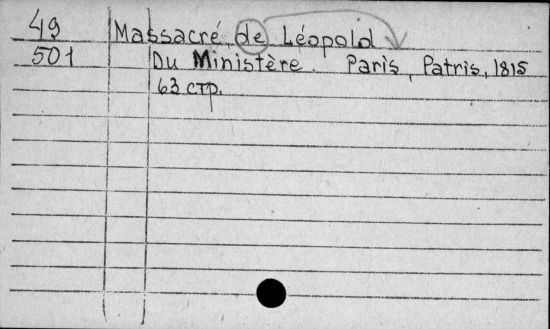 49 Massacré, de Léopold
501 Du Ministère. Paris, Patris, 1815
63 стр.